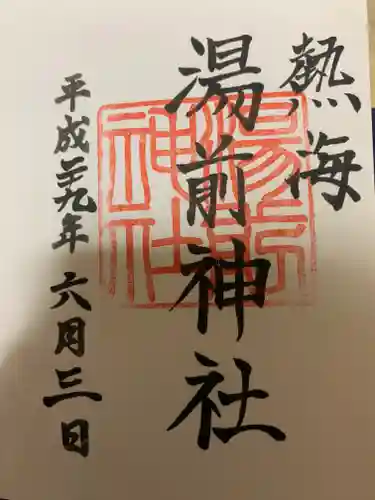 熱海
湯前神社
平成二十九年六月三日
湯前
神社